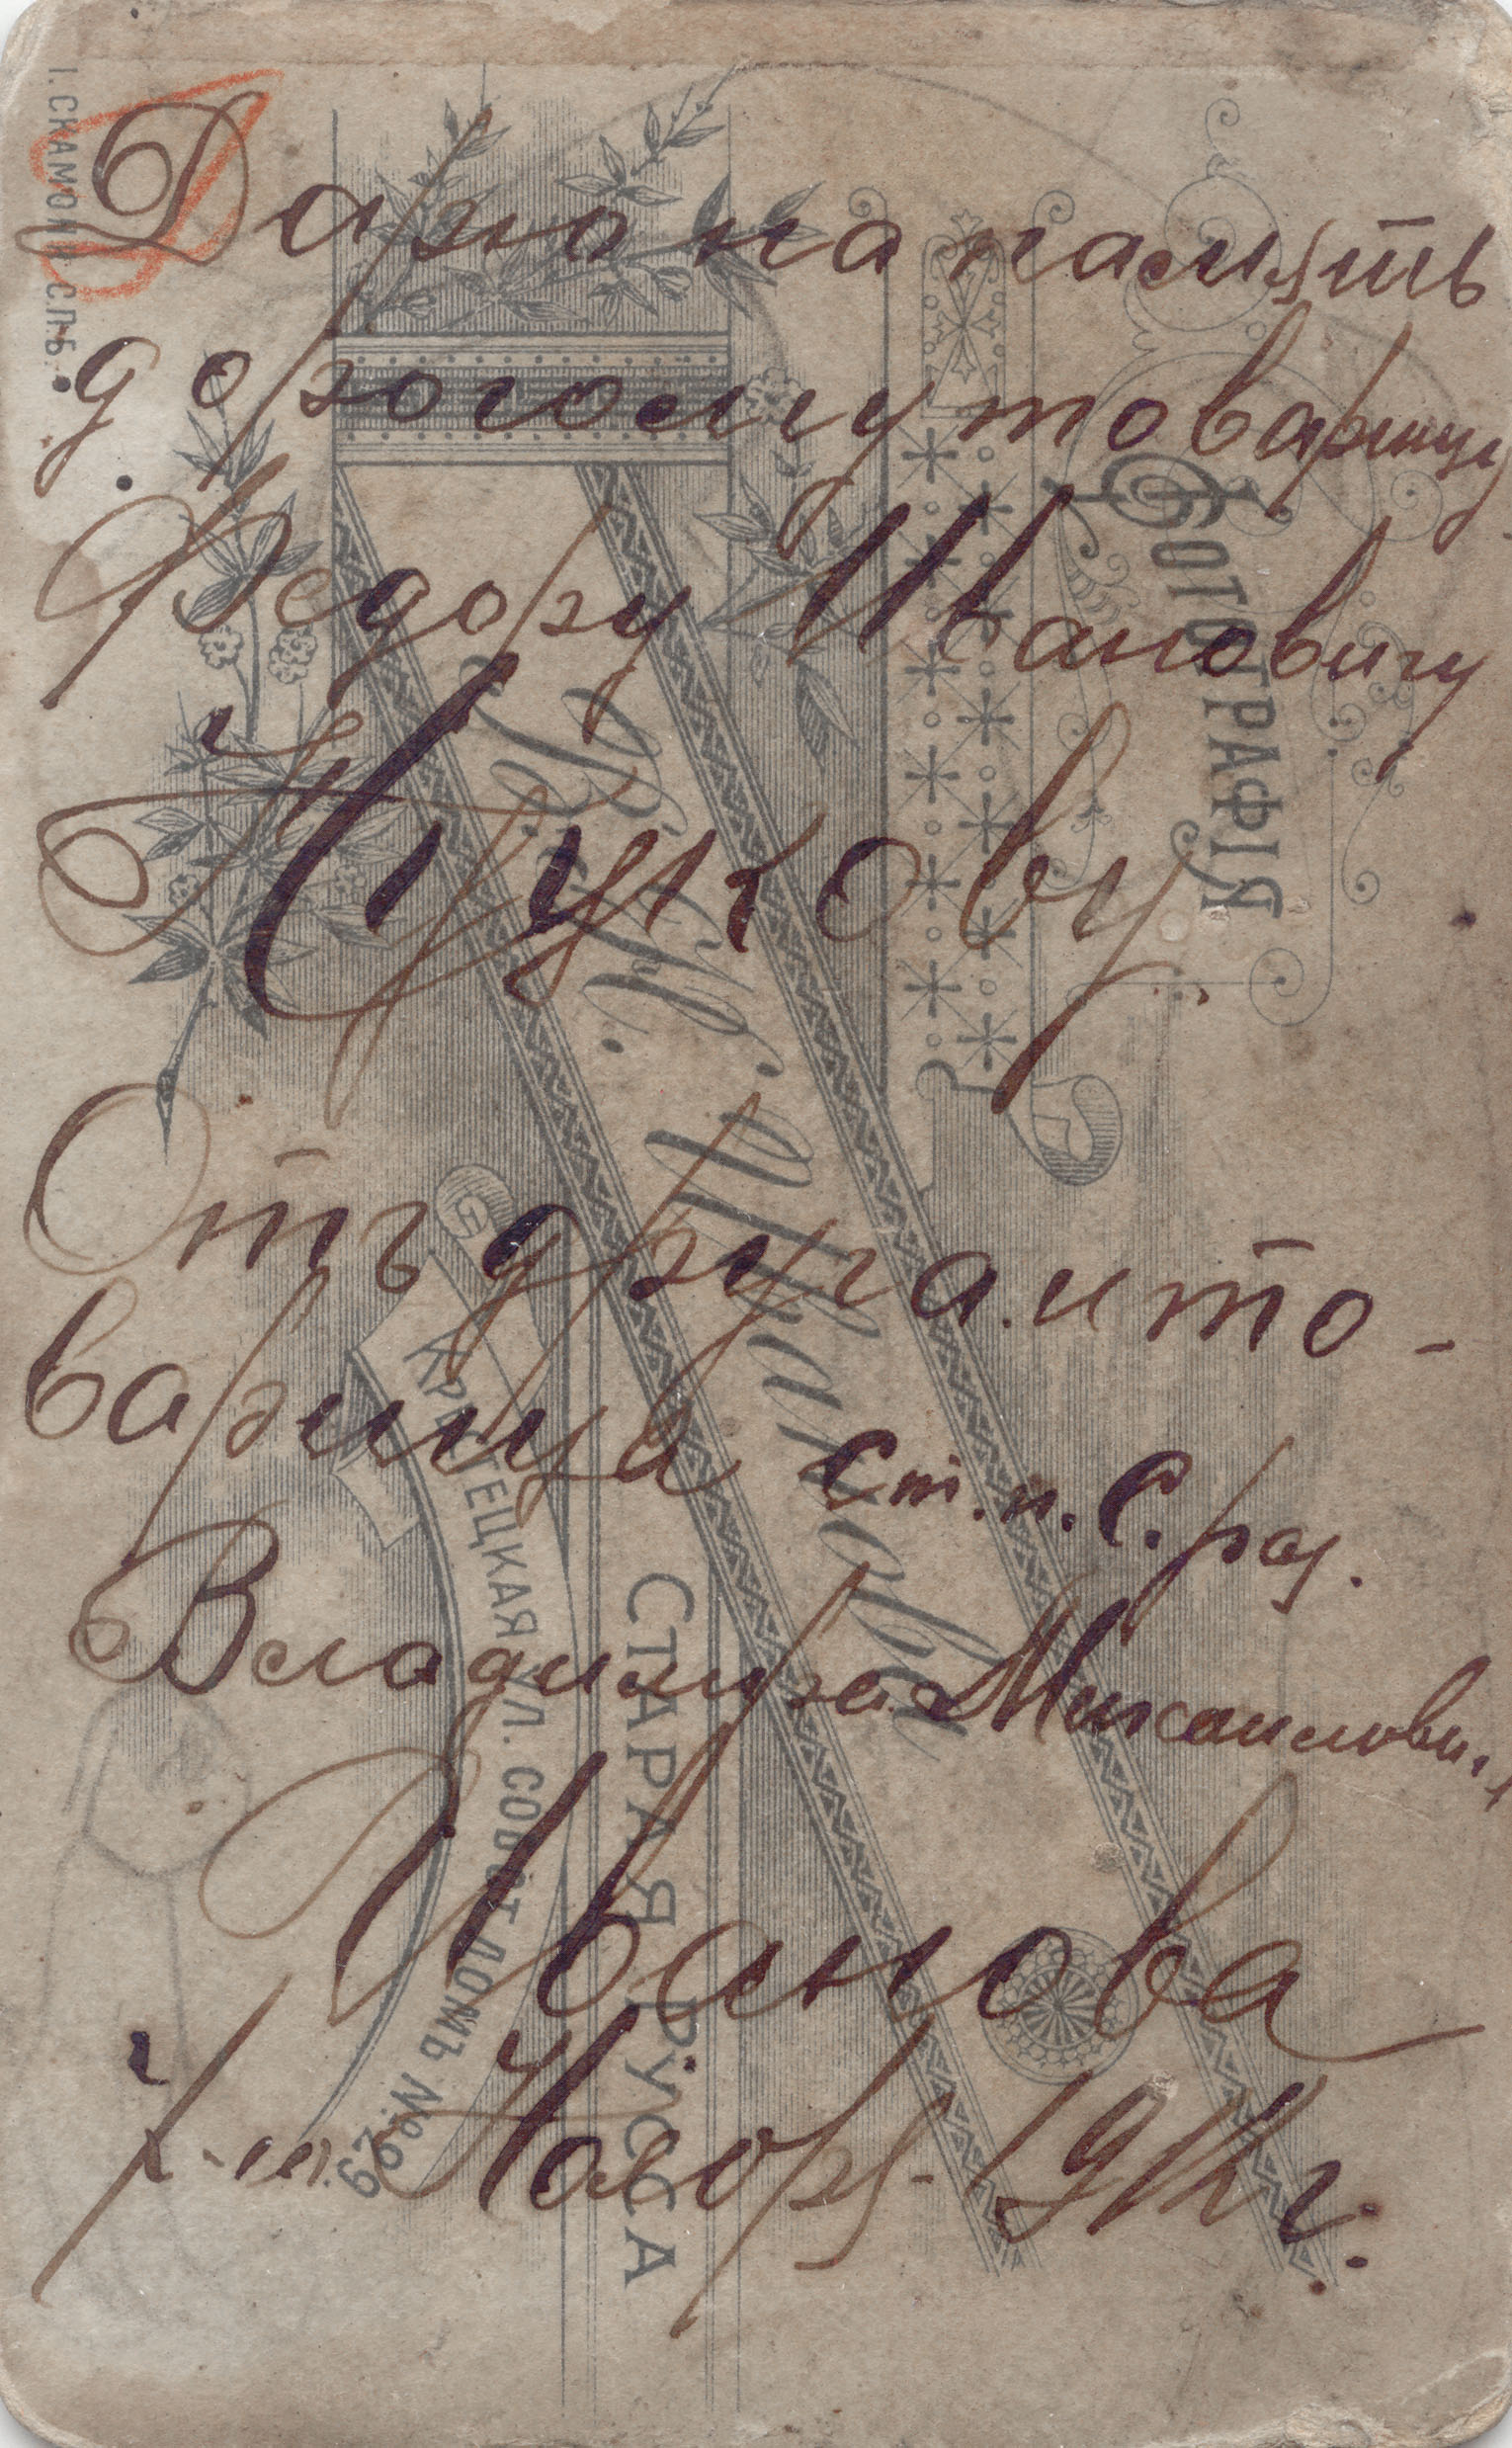 Дарю на память
дорогому товарищу
Федору Ивановичу
Жукову.
Отъ друга и то-
варища Ст. п. С. раз.
Владимира Михаилови.
Иванова
7-го Ноября 1912 г.
ФОТОГРАФІЯ
Иванова
СТАРАЯ РУССА
КРЕСТЕЦКАЯ УЛ. СОБСТ. ДОМЪ №
І. СКАМОНИ. СПБ.